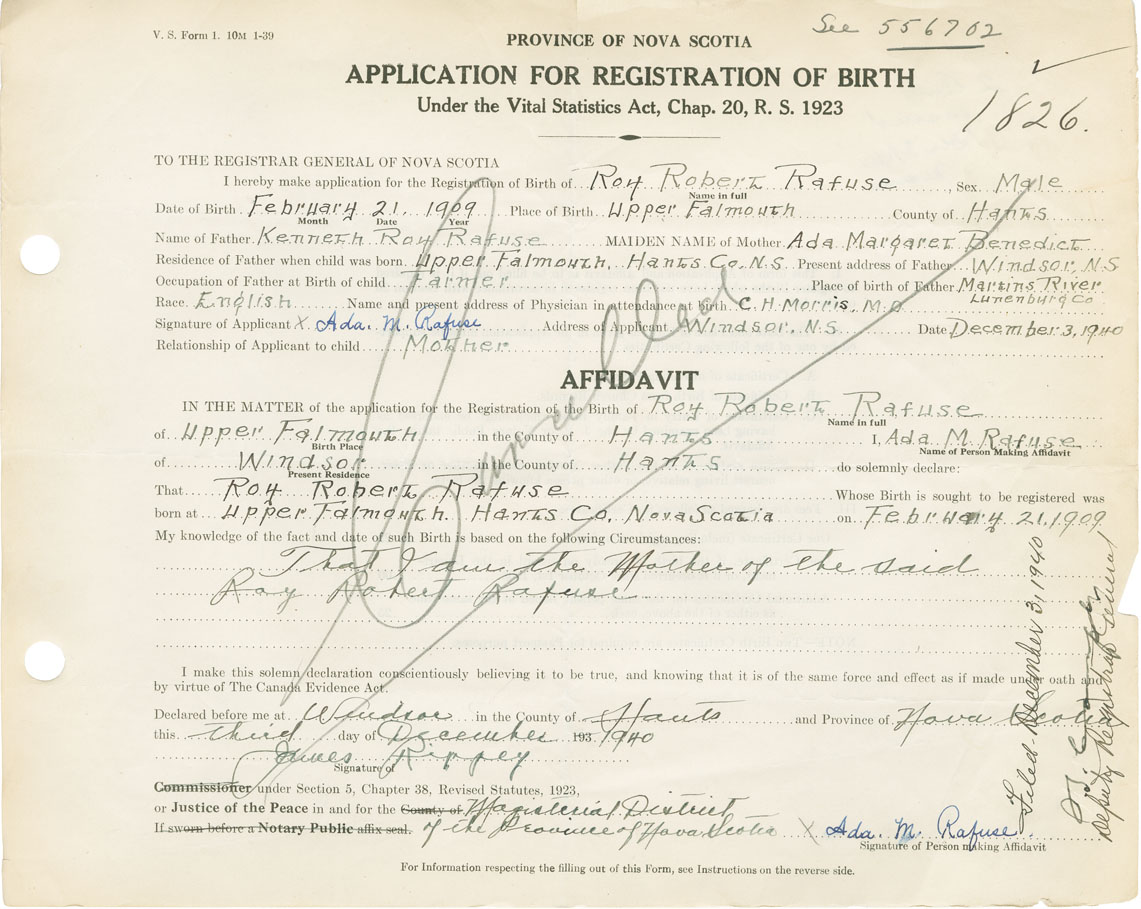 V. S. Form 1. 10M 1-39
See 556702
PROVINCE OF NOVA SCOTIA
APPLICATION FOR REGISTRATION OF BIRTH
Under the Vital Statistics Act, Chap. 20, R. S. 1923
1826.
TO THE REGISTRAR GENERAL OF NOVA SCOTIA
I hereby make application for the Registration of Birth of Roy Robert Rafuse, Sex Male
Name in full
Date of Birth February 21, 1909 Place of Birth Upper Falmouth County of Hants
Month Date Year
Name of Father Kenneth Roy Rafuse MAIDEN NAME of Mother Ada Margaret Benedict
Residence of Father when child was born Upper Falmouth, Hants Co., N.S. Present address of Father Windsor, N.S
Occupation of Father at Birth of child Farmer Place of birth of Father Martins River
Lunenburg Co
Race English Name and present address of Physician in attendance at birth C. H. Morris, M.D
Signature of Applicant X Ada. M. Rafuse Address of Applicant Windsor, N.S. Date December 3, 1940
Relationship of Applicant to child Mother
Cancelled
AFFIDAVIT
IN THE MATTER of the application for the Registration of the Birth of Roy Robert Rafuse
Name in full
of Upper Falmouth in the County of Hants I, Ada M. Rafuse
Birth Place Name of Person Making Affidavit
of Windsor in the County of Hants do solemnly declare:
Present Residence
That Roy Robert Rafuse Whose Birth is sought to be registered was
born at Upper Falmouth, Hants Co., Nova Scotia on February 21, 1909
My knowledge of the fact and date of such Birth is based on the following Circumstances:
That I am the Mother of the said
Roy Robert Rafuse
I make this solemn declaration conscientiously believing it to be true, and knowing that it is of the same force and effect as if made under oath and
by virtue of The Canada Evidence Act.
Declared before me at Windsor in the County of Hants and Province of Nova Scotia
this third day of December 193 1940
James Rippey
Signature of
Commissioner under Section 5, Chapter 38, Revised Statutes, 1923,
or Justice of the Peace in and for the County of Magisterial District
If sworn before a Notary Public affix seal. of the Province of Nova Scotia X Ada. M. Rafuse
Signature of Person making Affidavit
For Information respecting the filling out of this Form, see Instructions on the reverse side.
Filed December 3, 1940
Deputy Registrar General